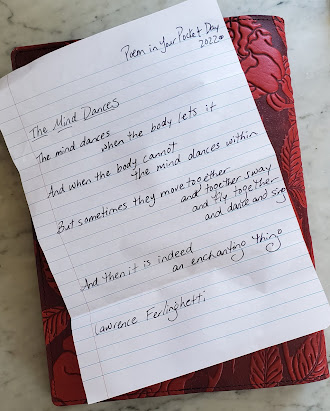 Poem in Your Pocket Day
2022
The Mind Dances
The mind dances
when the body lets it
And when the body cannot
the mind dances within
But sometimes they move together
and together sway
and fly together
and dance and sing
And then it is indeed
an enchanting thing
Lawrence Ferlinghetti